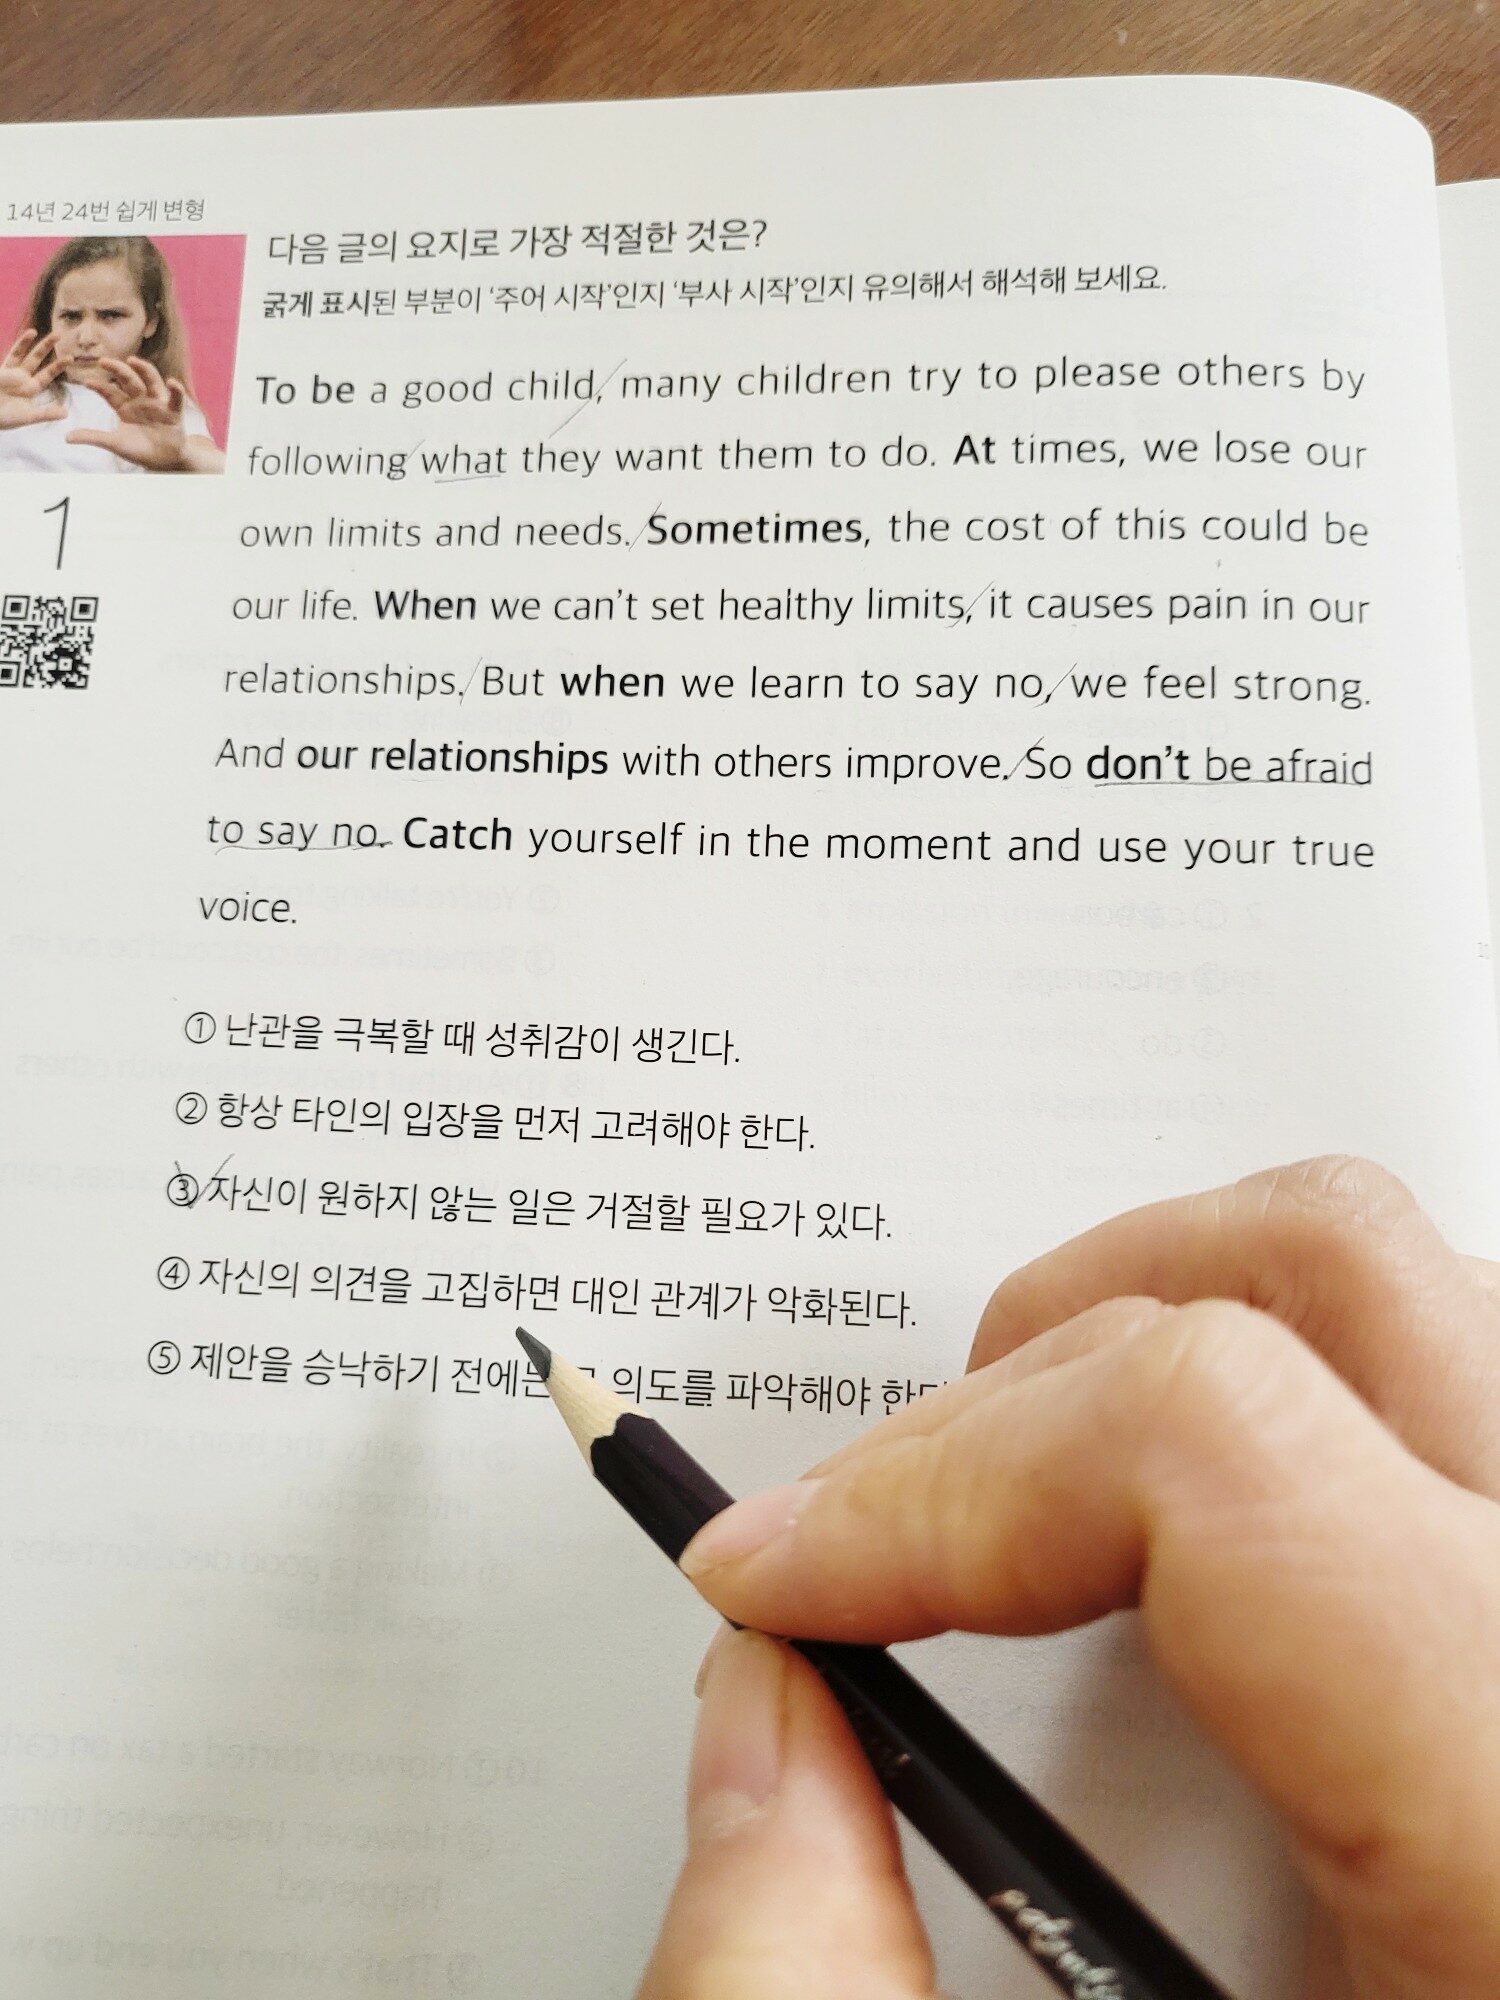 14년 24번 쉽게 변형
다음 글의 요지로 가장 적절한 것은?
굵게 표시된 부분이 ‘주어 시작’인지 ‘부사 시작’인지 유의해서 해석해 보세요.
To be a good child, many children try to please others by
following what they want them to do. At times, we lose our
own limits and needs. Sometimes, the cost of this could be
1
our life. When we can’t set healthy limits, it causes pain in our
relationships. But when we learn to say no, we feel strong.
And our relationships with others improve. So don’t be afraid
to say no. Catch yourself in the moment and use your true
voice.
① 난관을 극복할 때 성취감이 생긴다.
② 항상 타인의 입장을 먼저 고려해야 한다.
③ 자신이 원하지 않는 일은 거절할 필요가 있다.
④ 자신의 의견을 고집하면 대인 관계가 악화된다.
⑤ 제안을 승낙하기 전에는 의도를 파악해야